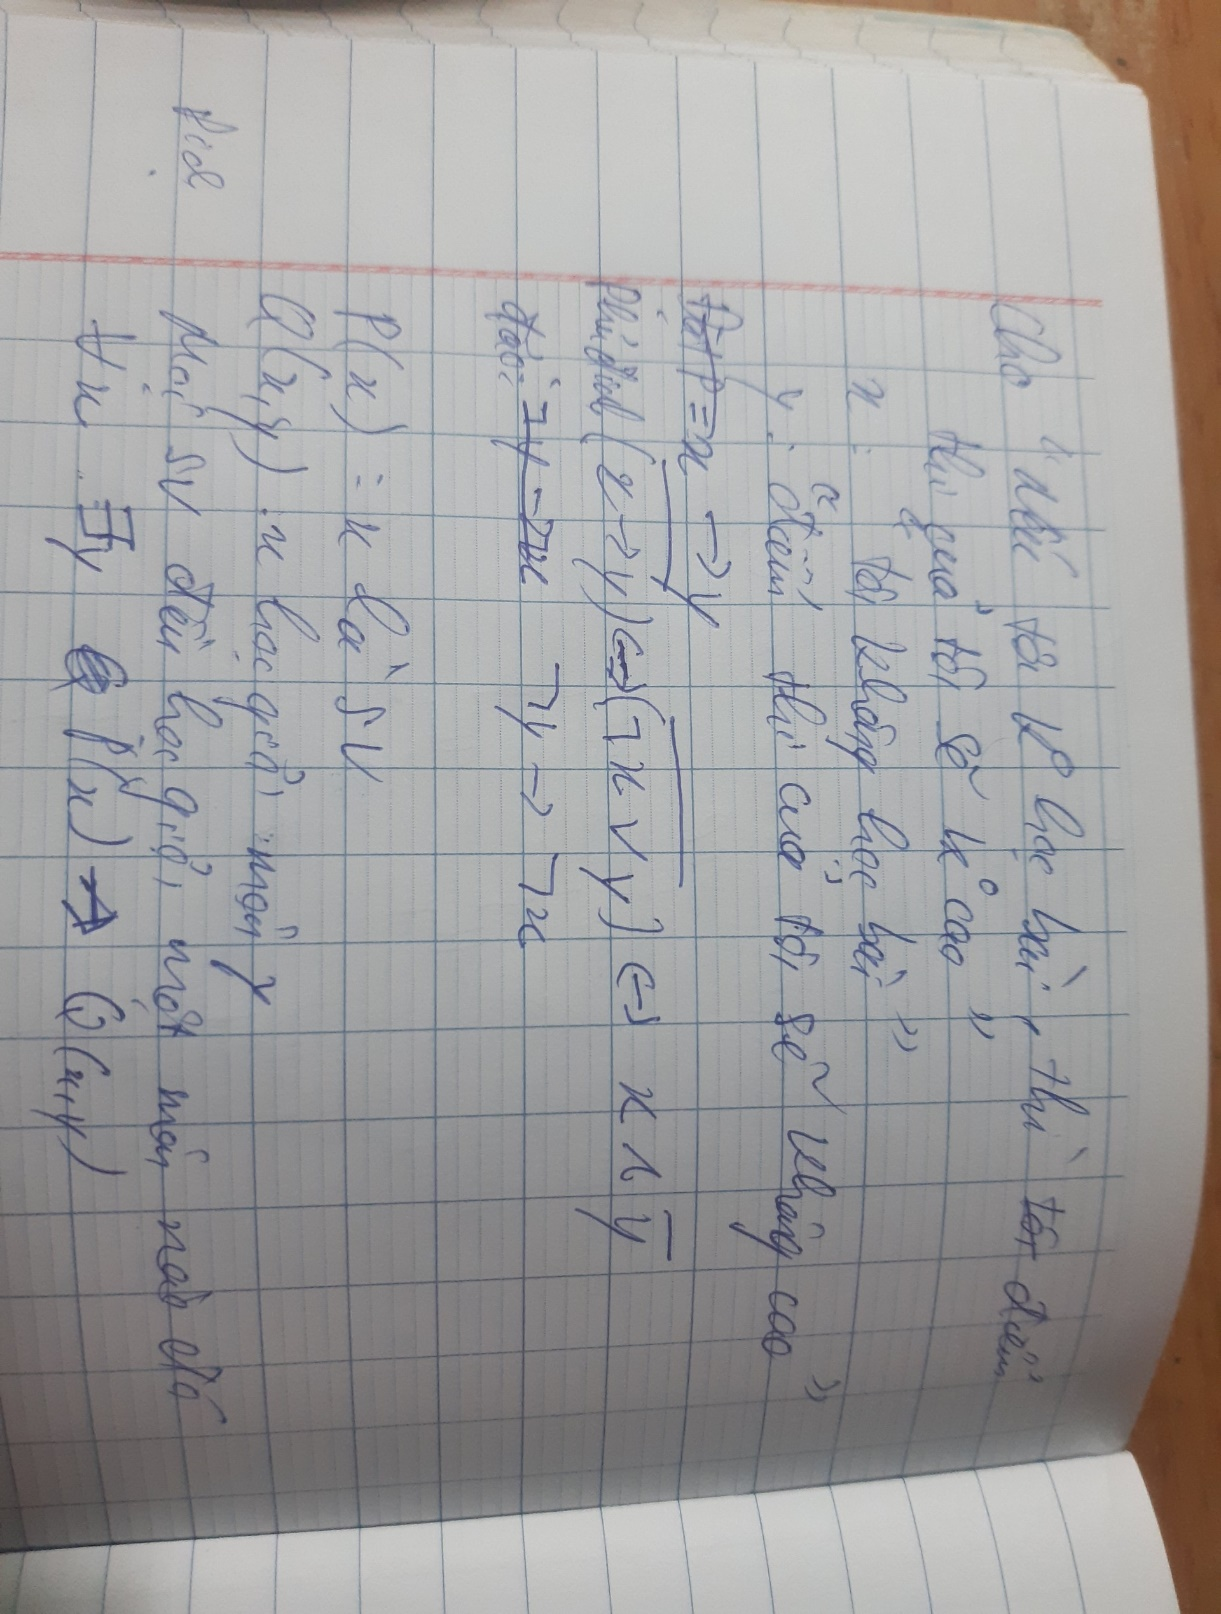 Cho "Nếu tôi k° học bài, thì tôi điểm
thi của tôi sẽ k° cao"
x: "tôi không học bài"
y: "điểm thi của tôi sẽ không cao"
Đặt P = x → y
Phủ định (x → y) ⟺ (¬x ∨ y) ⟺ x ∧ y̅
đảo: ¬y → ¬x ¬y → ¬x
P(x) = x là SV
Q(x,y): x học giỏi môn y
Mọi SV đều học giỏi một môn nào đó
∀x ∃y P(x) → Q(x,y)